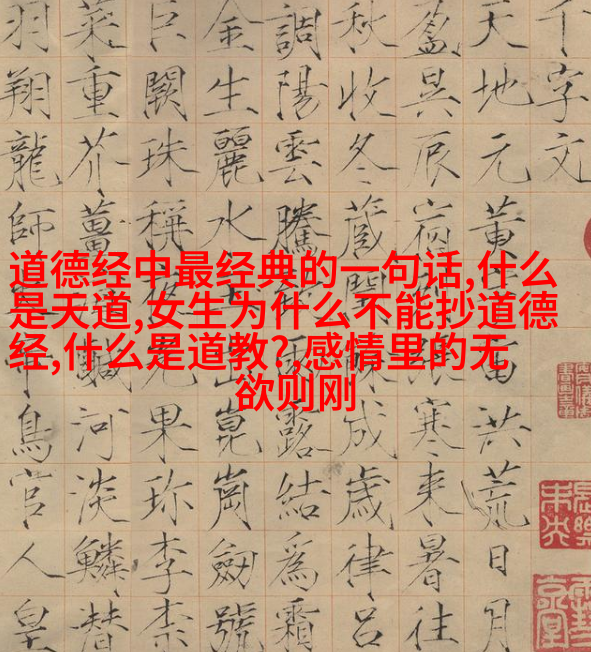 道德经中最经典的一句话,什么
是天道,女生为什么不能抄道德
经,什么是道教?,感情里的无
欲则刚
千字文
天地元黃洪荒日月
盈昃辰宿寒来暑往
秋收冬蔵成歳律吕
調陽雲騰露結為霜
金生麗水崑崗劍號
巨闕珠稱果珍李柰
菜重芥薑河淡鱗潜
羽翔龍師鳥官人皇